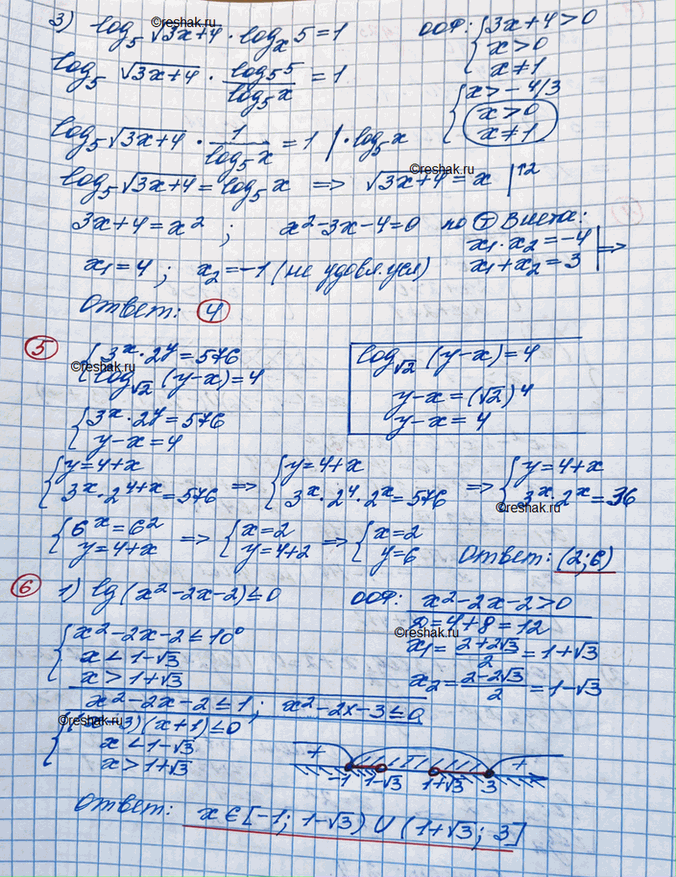 ©reshak.ru
3) log₅ √3x+4 · logₓ 5 = 1 ООФ: { 3x+4>0
x>0
x≠1
log₅ √3x+4 · log₅5 / log₅x = 1
{ x>-4/3
x>0
x≠1
log₅ √3x+4 · 1 / log₅x = 1 | · log₅x
©reshak.ru
log₅ √3x+4 = log₅ x => √3x+4 = x |↑2
3x+4=x² ; x²-3x-4=0 по Т Виета:
x₁·x₂=-4
x₁+x₂=3 | =>
x₁=4 ; x₂=-1 (не удовл. усл)
Ответ: 4
5 { 3ˣ·2ʸ=576
log√2 (y-x)=4
©reshak.ru
log√2 (y-x)=4
y-x=(√2)⁴
y-x=4
{ 3ˣ·2ʸ=576
y-x=4
{ y=4+x
3ˣ·2⁴⁺ˣ=576 => { y=4+x
3ˣ·2⁴·2ˣ=576 => { y=4+x
3ˣ·2ˣ=36
©reshak.ru
{ 6ˣ=6²
y=4+x => { x=2
y=4+2 => { x=2
y=6 Ответ: (2;6)
6 1) lg(x²-2x-2)≤0 ООФ: x²-2x-2>0
D=4+8=12
©reshak.ru
x₁=2+2√3 / 2=1+√3
x₂=2-2√3 / 2=1-√3
{ x²-2x-2≤10⁰
x<1-√3
x>1+√3
x²-2x-2≤1 ; x²-2x-3≤0
©reshak.ru
{ (x-3)(x+1)≤0
x<1-√3
x>1+√3
+ - +
-1 1-√3 1+√3 3
Ответ: x∈[-1; 1-√3) U (1+√3; 3]